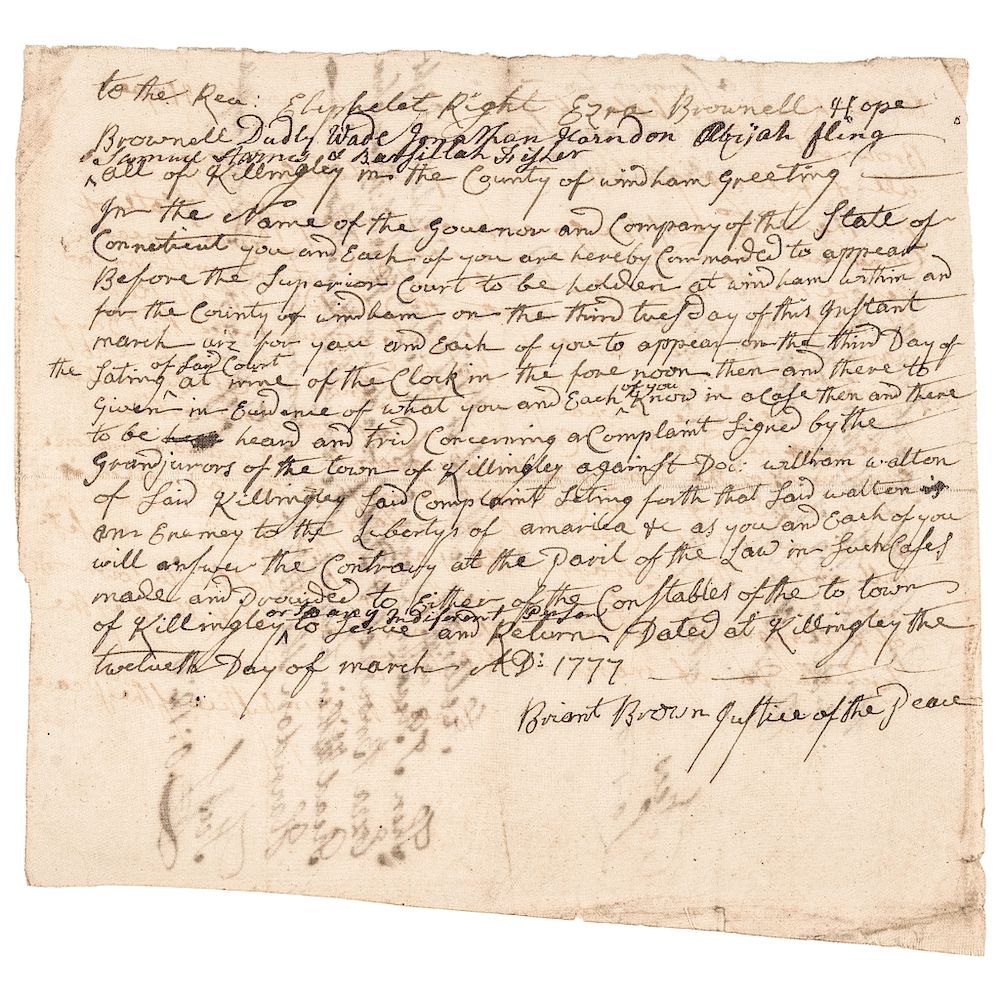 to the Rea: Eliphelet Right Ezra Brownell Hope
Brownell Dudly Wade Jonathan Harndon Abijah fling
Samuel Starns & Barsillah Fisher
^ all of Killingley in the County of windham Greeting
In the Name of the Govenor and Company of the State of
Conneticut you and Each of you are hereby Commanded to appear
Before the Superior Court to be holden at windham within and
for the County of windham on the third tuesday of this Instant
march viz for you and Each of you to appear on the third Day of
the Sating ^ of Said Court at nine of the Clock in the fore noon then and there to
Given in Evidence of what you and Each ^ of you Know in a Case then and there
to be heard and trid Concerning a Complaint Signed by the
Grandjurors of the town of Killingley against Doc: william walton
of Said Killingley Said Complaint Seting forth that Said walton is
an Enemey to the Libertys of amarica &c as you and Each of you
will answer the Contrary at the Paril of the Law in Such Cases
made and Provided to Either of the Constables of the to town
of Killingley ^ or to any Indiferent Person to Serve and Return Dated at Killingley the
twelveth Day of march AD: 1777
Briant Brown Justice of the Peace